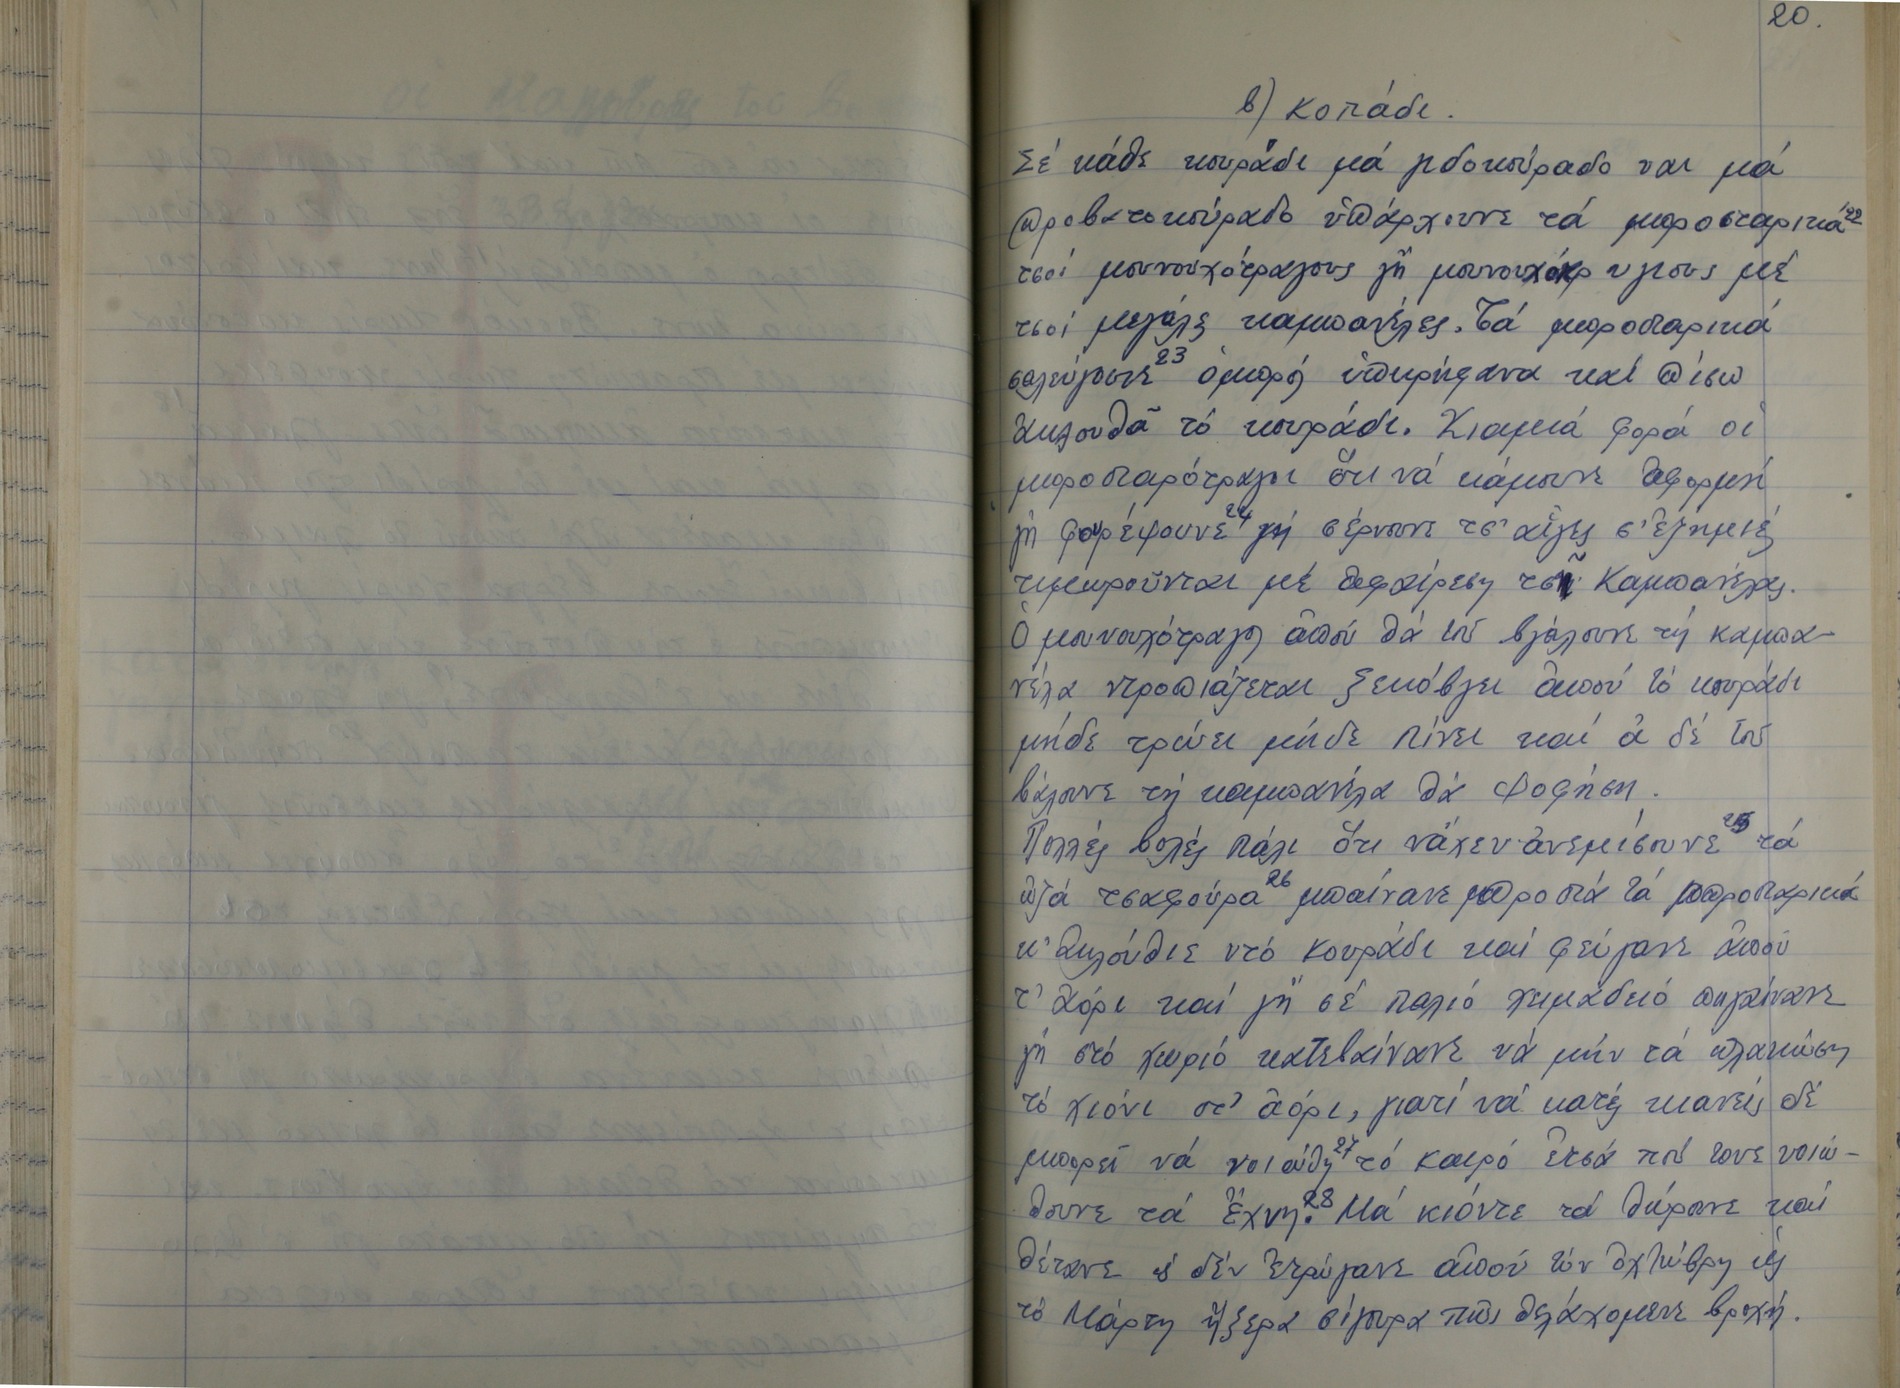 20.
β) κοπάδι.
Σέ κάθε κουράδι μά γιδοκούραδο ναι μά
προβατοκούραδο ὑπάρχουνε τά μπροσταρικά²²
τσοί μουνουχότραγους γή μουνουχόκρυγιους μέ
τσοί μεγάλες καμπανέλες. Τά μπροσταρικά
σαλεύγουνε²³ ὀμπρός ὑπερήφανα καί πίσω
ἀκλουθᾶ τό κουράδι. Κιαμιά φορά οἱ
μπροσταρότραγοι ὅτι νά κάμουνε ἀφορμή
γή φουρέψουνε²⁴ γή σέρνουνε τσ' αἶγες σ' ἐζημιές
τιμωροῦνται μέ ἀφαίρεση τσῆ καμπανέλας.
Ὁ μουνουχότραγος ἀπού θά τοῦ βγάλουνε τή καμπα-
νέλα ντροπιάζεται ξεκόβγει ἀπού τό κουράδι
μήδε τρώει μήδε πίνει καί ἀ δέ τοῦ
βάλουνε τή καμπανέλα θά ψοφήση.
Πολλές βολές πάλι ὅτι νἄχεν ἀνεμίσουνε²⁵ τά
ὠζά τσαφούρα²⁶ μπαίνανε μπροστά τά μπροσταρικά
κ' ἀκλούθιε ντό κουράδι καί φεύγανε ἀπού
τ' ἀόρι καί γή σέ παλιό χειμαδειό πηγαίνανε
γή στό χωριό κατεβαίνανε νά μήν τά πλακώση
τό χιόνι στ' ἀόρι, γιατί νά κατές κιανείς δέ
μπορεῖ νά νοιώθη²⁷ τό καιρό ἐτσά πού τονε νοιώ-
θουνε τά ἔχνη.²⁸ Μά κιόντε τά θώρουνε καί
θέτανε κ' δέν ἐτρώγανε ἀπού τόν Ὀχτώβρη ὡς
τό Μάρτη ἤξερα σίγουρα πῶς θελάχομενε βροχή.